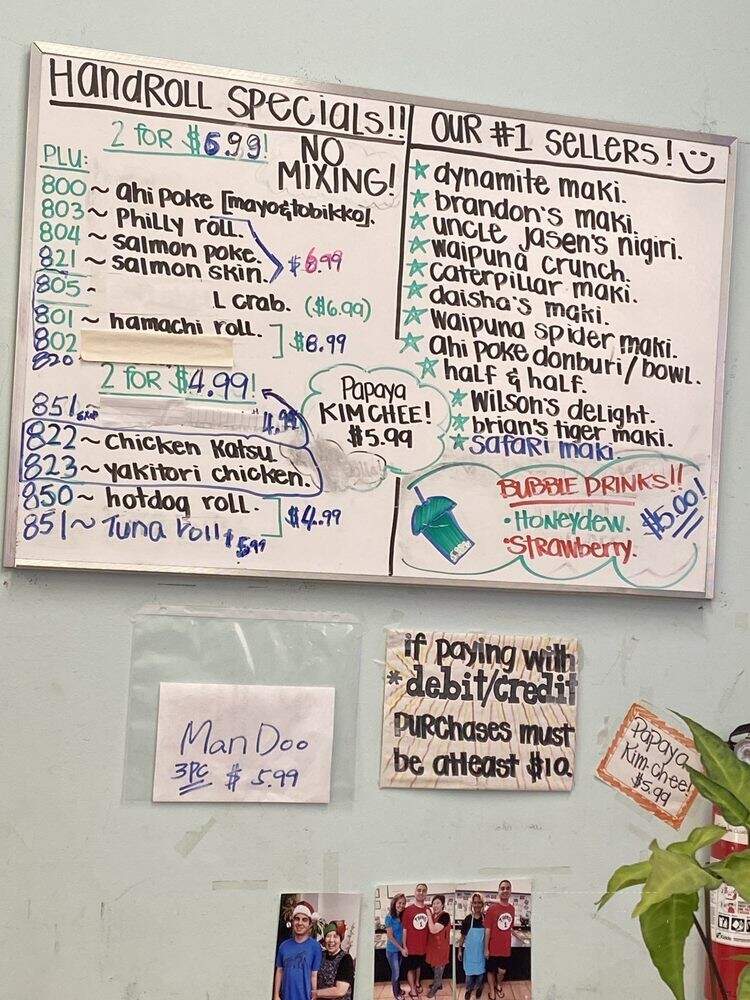 HandROLL SPECIALS!!
2 FOR $6.99!
NO
MIXING!
PLU:
800~ ahi poke [mayo&tobikko].
803~ Philly roll.
804~ salmon poke.
821~ salmon skin.
$6.99
805-
L crab. ($6.99)
801~ hamachi roll.
802
$6.99
820
2 FOR $4.99!
851
4.99
822~ Chicken Katsu
823~ yakitori chicken.
850~ hotdog roll.
$4.99
851~ Tuna roll $5.99
Papaya
KIMCHEE!
$5.99
OUR #1 SELLERS!
dynamite maki.
brandon's maki.
uncle jasen's nigiri.
Waipuna crunch.
caterpillar maki.
daisha's maki.
Waipuna spider maki.
ahi poke donburi/bowl.
half & half.
Wilson's delight.
brian's tiger maki.
SAFARI maki.
BUBBLE DRINKS!!
•Honeydew.
•Strawberry.
$5.00!
Man Doo
3PC $ 5.99
if paying with
*debit/credit
purchases must
be atleast $10.
Papaya
Kim-chee!
$5.99